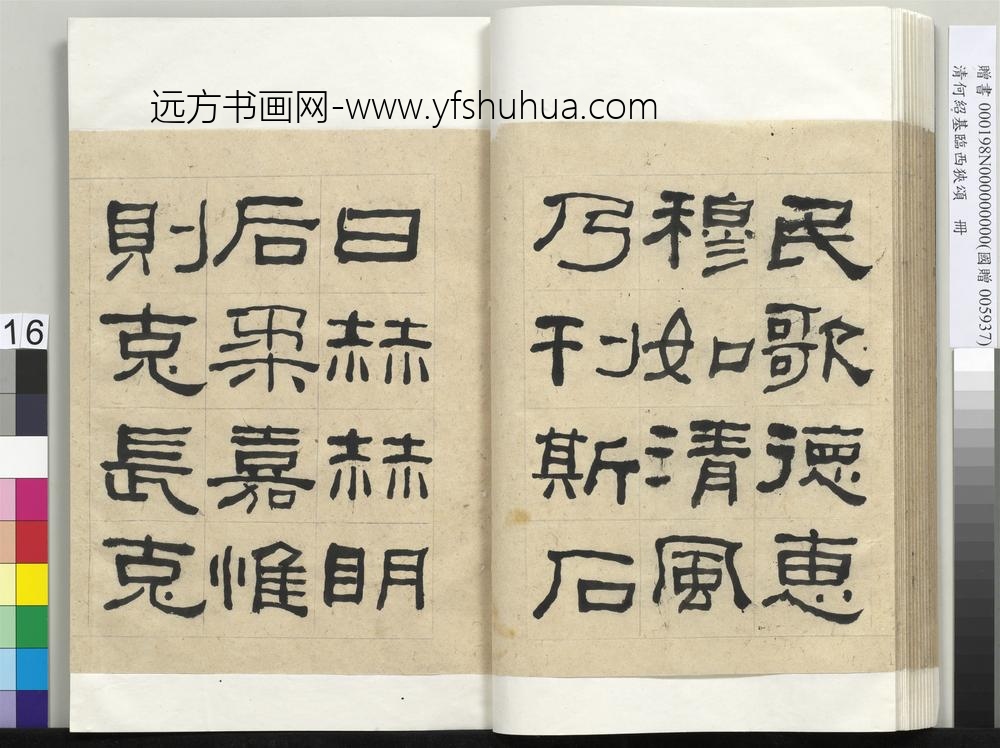 远方书画网-www.yfshuhua.com
民歌德惠
穆如清風
乃刊斯石
曰赫赫明
后柔嘉惟
則克長克
贈書 000198N000000000(國贈 005937)
清何紹基臨西狹頌 冊
16